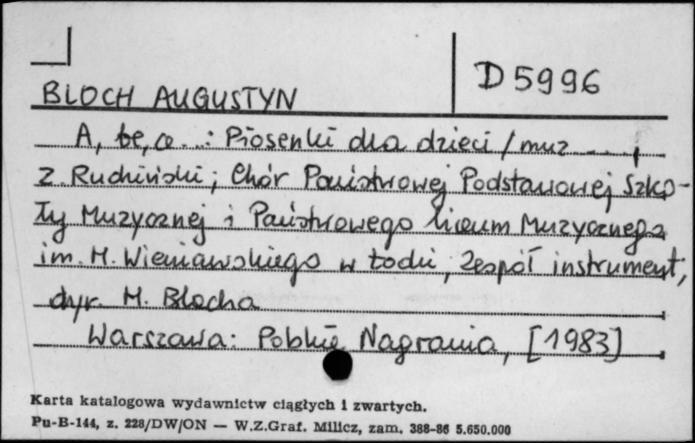 D 5996
BLOCH AUGUSTYN
A, be, ce...: Piosenki dla dzieci / muz
Z. Ruciński; Chór Państwowej Podstawowej Szko-
ły Muzycznej i Państwowego Liceum Muzycznego
im. H. Wieniawskiego w Łodzi, Zespół instrument,
dyr. M. Blocha
Warszawa: Polskie Nagrania, [1983]
Karta katalogowa wydawnictw ciągłych i zwartych.
Pu-B-144, z. 228/DW/ON — W.Z.Graf. Milicz, zam. 388-86 5.650.000